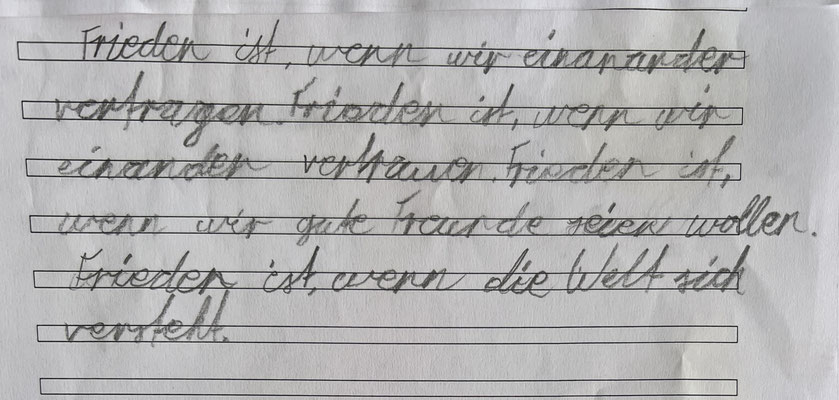 Frieden ist, wenn wir einanander
vertragen. Frieden ist, wenn wir
einander vertrauen. Frieden ist,
wenn wir gute Freunde seien wollen.
Frieden ist, wenn die Welt sich
versteht.